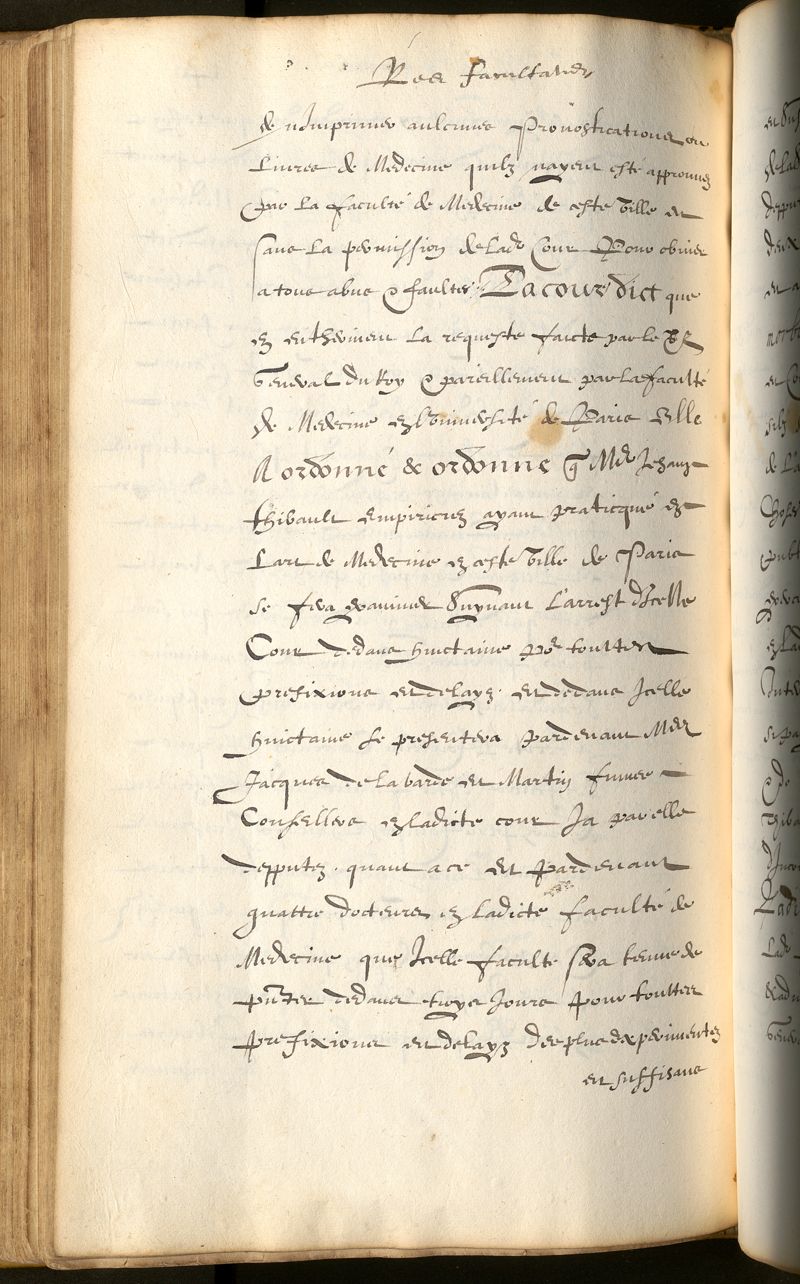 Res facultatis
de n'Imprimer aulcunes Pronostications ou
Liures de Medecine quilz nayent esté approuuez
Par La faculté de Medecine de ceste ville et
sans La permission de lad. Cour Pour obuier
a tous abus & faultes. La cour dict que
en entherinent La requeste faicte par le
General du Roy & pareillement par La faculté
de Medecine en L'vniuersité de Paris Elle
A ordonné & ordonne q Me Jehan
thibault Empiricq ayant practicqué en
L'art de Medecine en ceste ville de Paris
se fera examiner suyuant L'arrest d'Icelle
Cour dedans huictaine por touttes
prefixions et delayz. et dedans Icelle
huictaine se presentera pardeuant Mes
Jacques de la barde et Martin fumee
Conseillers en ladicte cour Ja par elle
depputez. quant a ce et pardeuant
quattre docteurs en Ladicte faculté de
Medecine que Icelle faculté sera tenue de
pnter dedans troys Jours pour touttes
prefixions et delayz des plus experimentez
et suffisans